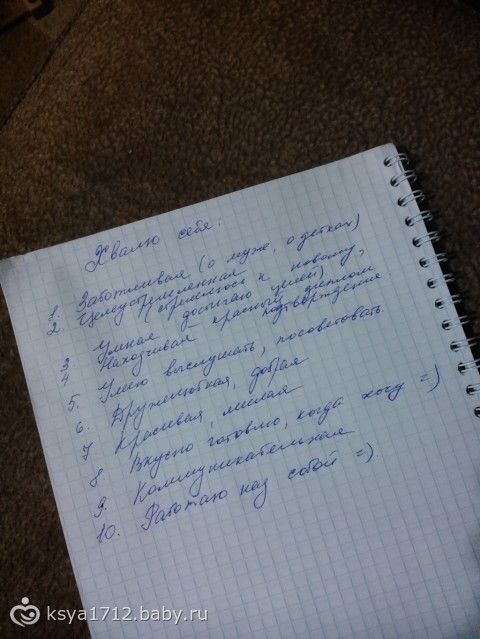 Хвалю себя:
1. Заботливая (о муже, о детках)
2 Целеустремленная
(стремлюсь к новому,
достигаю целей)
3 Умная, красный диплом
подтверждение
4 Находчивая
5. Умею выслушать, посоветовать
6. Дружелюбная, добрая
7 Красивая, милая
8 Вкусно готовлю, когда хочу =)
9. Коммуникательная
10. Работаю над собой =)
ksya1712.baby.ru